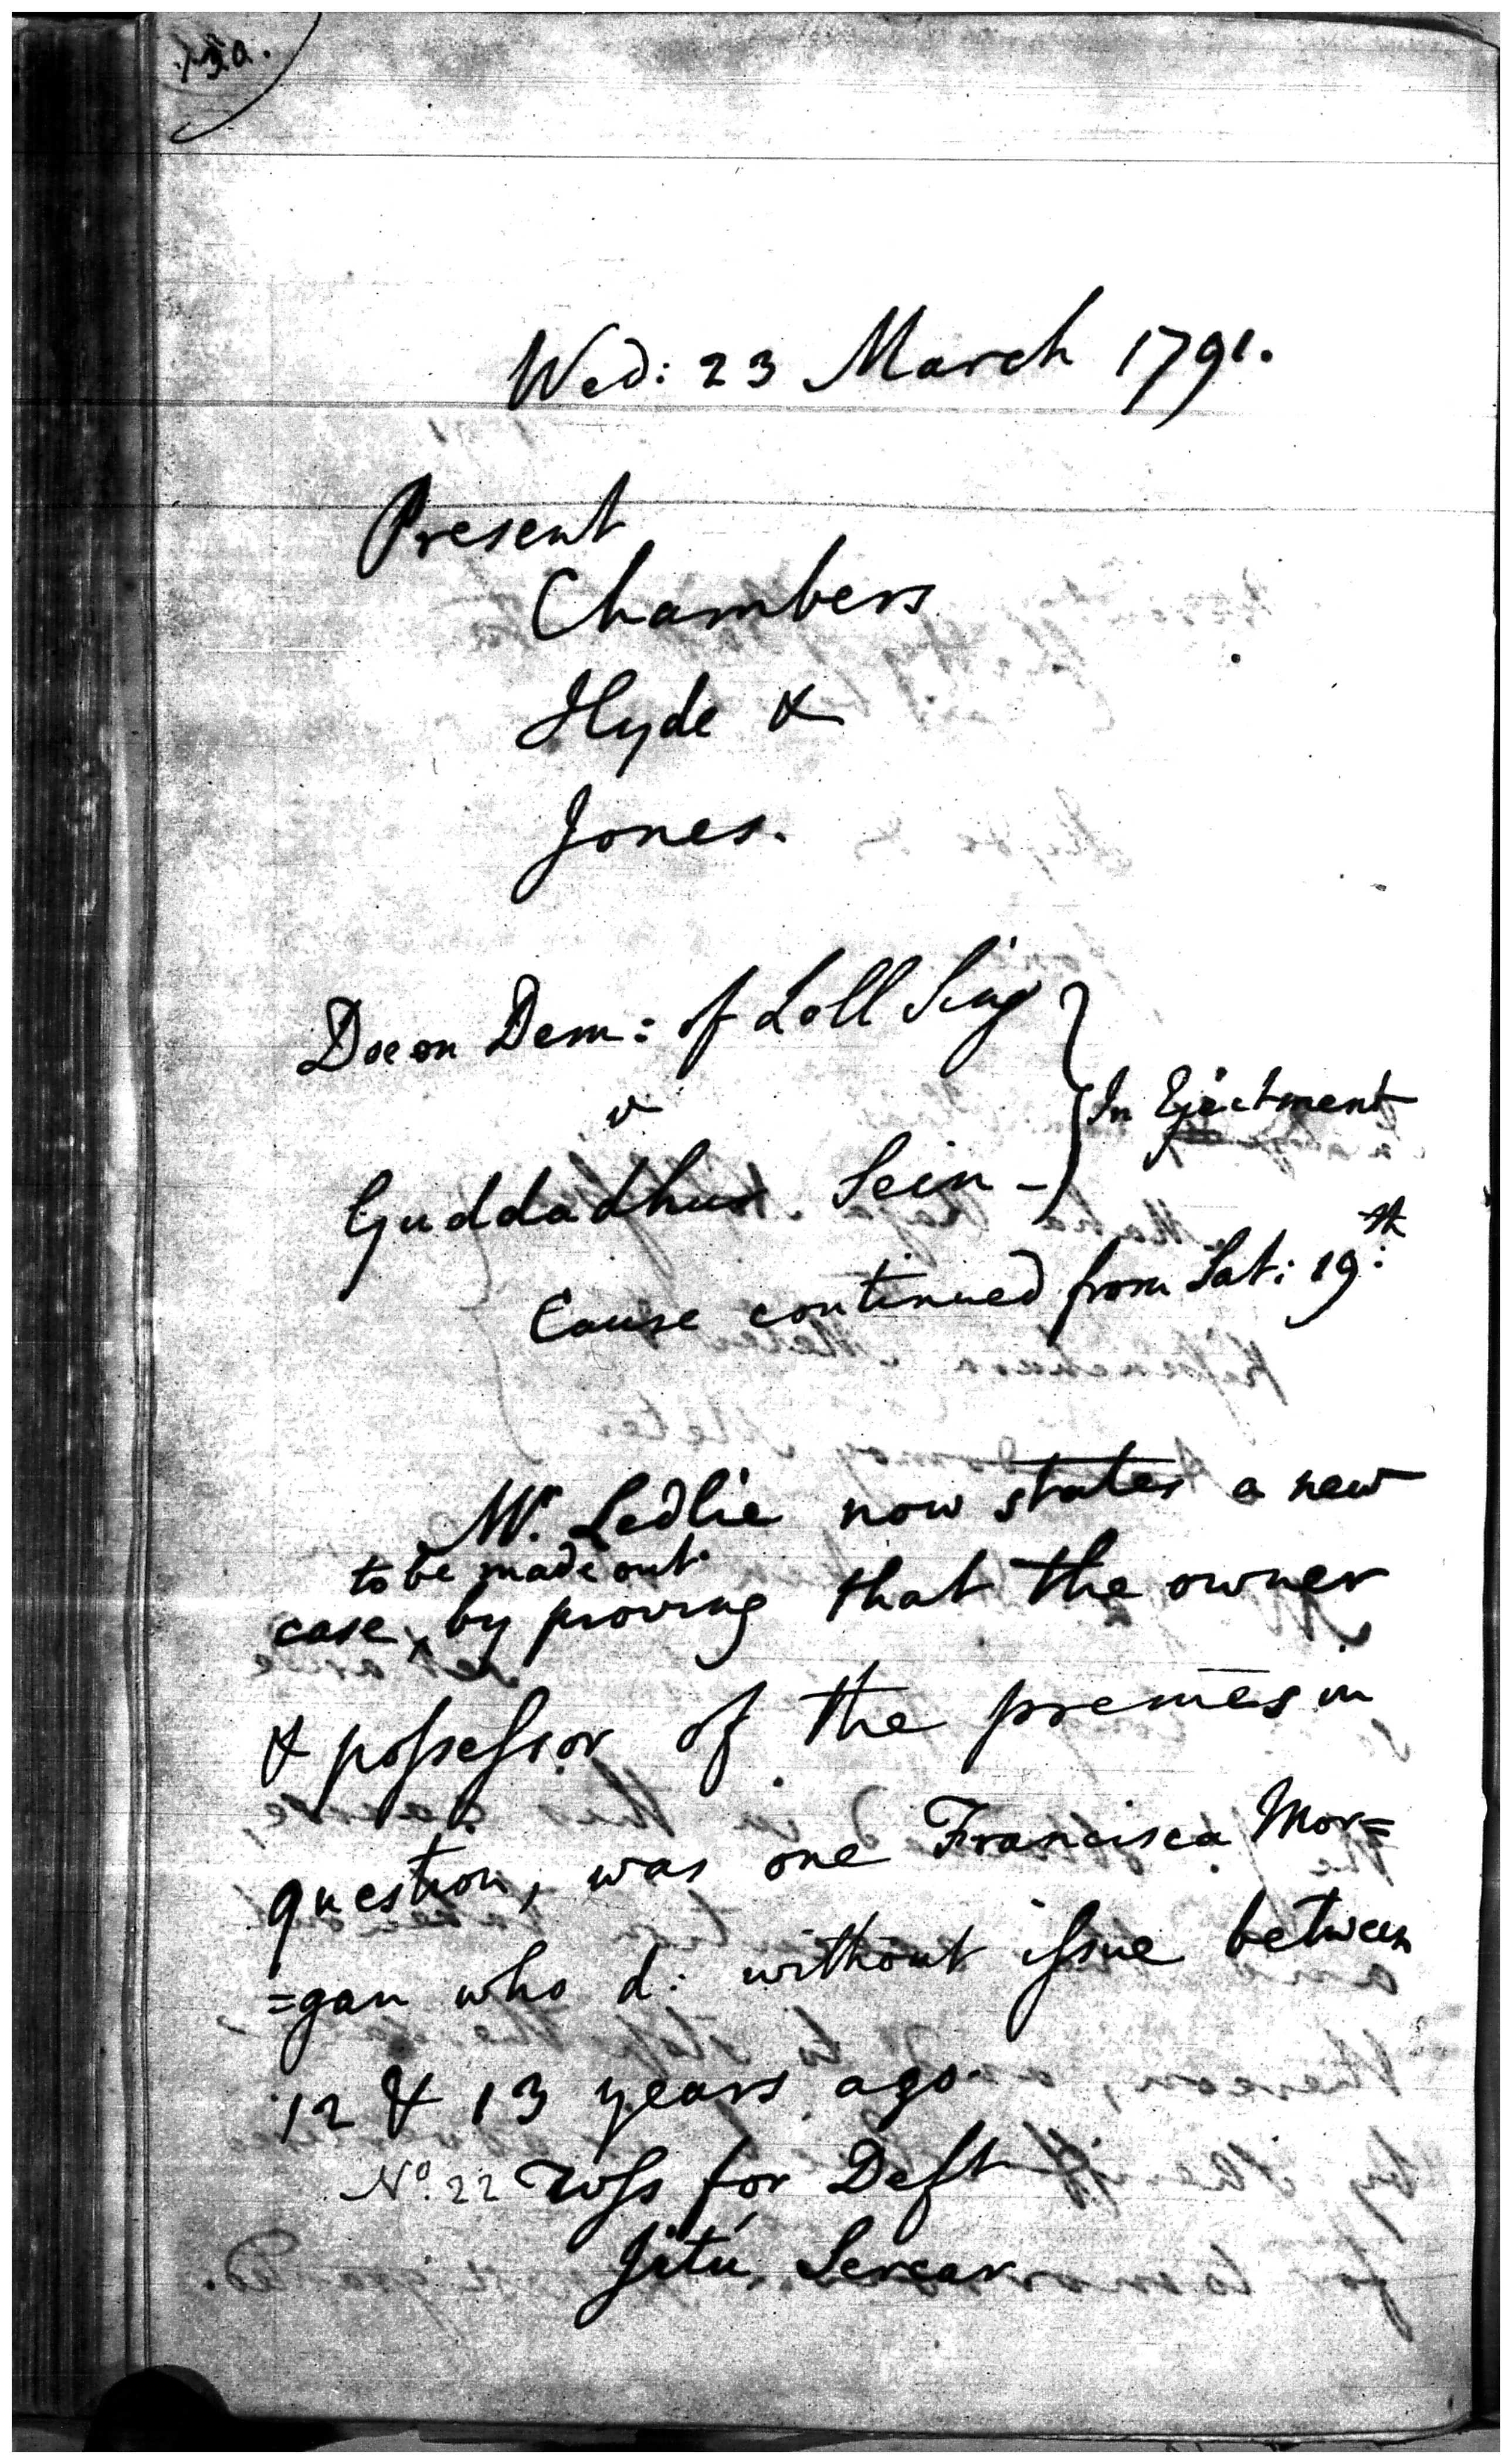 Wed: 23 March 1791.
Present
Chambers
Hyde &
Jones.
Doe on Dem: of Loll Sing
v
In Ejectment
Guddadhur Sein -
Cause continued from Sat: 19:th
Mr. Ledlie now states a new
to be made out
case, ^ by proving that the owner
& possessor of the premes in
question, was one Francisca Mor=
=gan who d: without issue between
12 & 13 years ago.
No. 22 Wss for Deft
Jitu Sercar